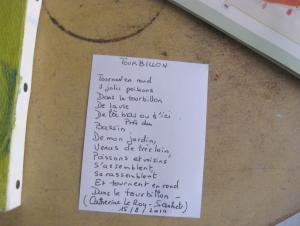 TOURBILLON
Tournent en rond
3 jolis poissons
Dans le tourbillon
De la vie
De là bas ou d'ici
Près du
Bassin
De mon jardin,
Venus de très loin,
Poissons et voisins
S'assemblent,
Se rassemblent
Et tournent en rond
Dans le tourbillon -
(Catherine Le Roy -
15/8/2019